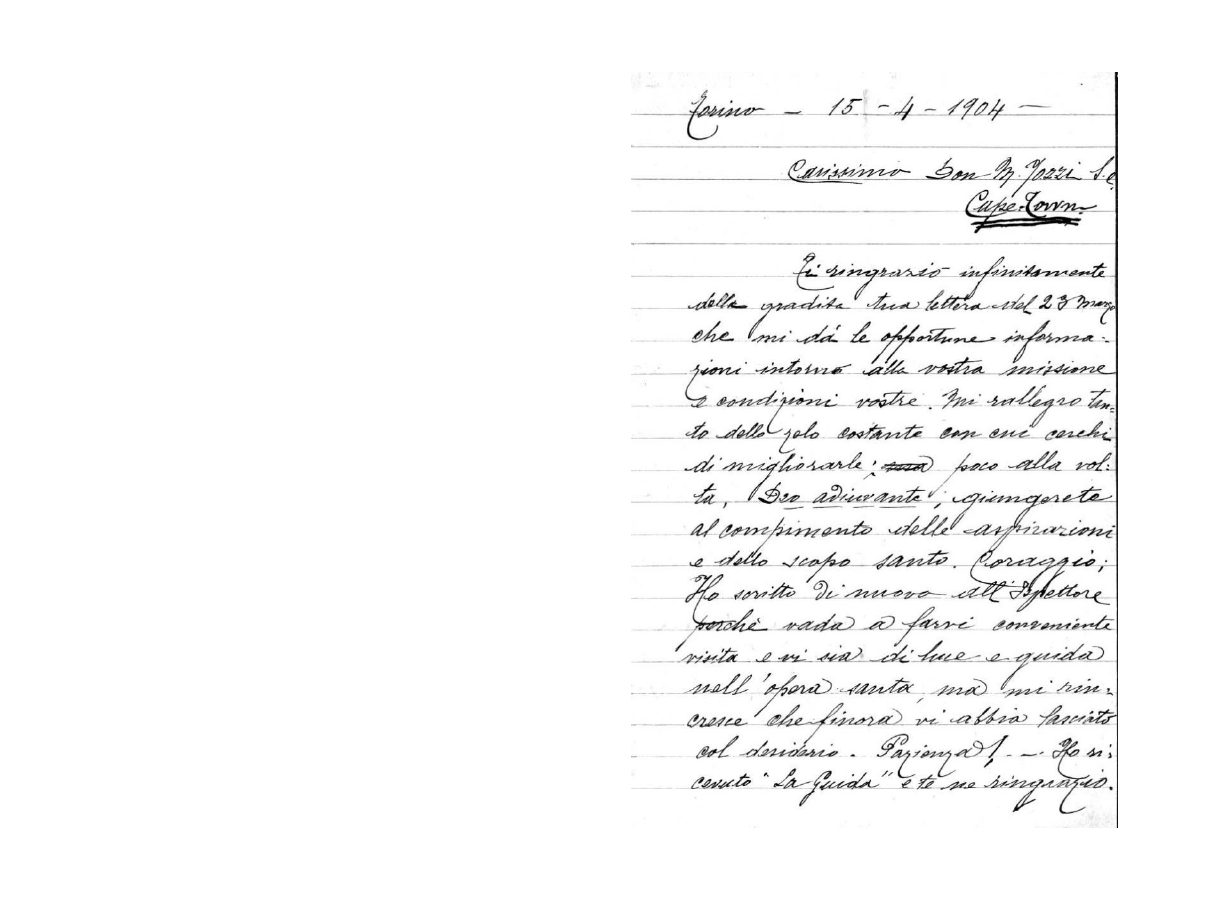 Torino - 15 - 4 - 1904 -
Carissimo Don M. Tozzi S. C.
Cape-Town
Ti ringrazio infinitamente
della gradita tua lettera del 23 Marzo
che mi dá le opportune informa-
zioni intorno alla vostra missione
e condizioni vostre. Mi rallegro tan=
to dello zelo costante con cui cerchi
di migliorarle; poco alla vol:
ta, Deo adiuvante, giungerete
al compimento delle aspirazioni
e dello scopo santo. Coraggio;
Ho scritto di nuovo all'Ispettore
perchè vada a farvi conveniente
visita e vi sia di luce e guida
nell'opera santa, ma mi rin-
cresce che finora vi abbia lasciato
col desiderio. Pazienza! - Ho ri:
cevuto "La Guida" e te ne ringrazio.